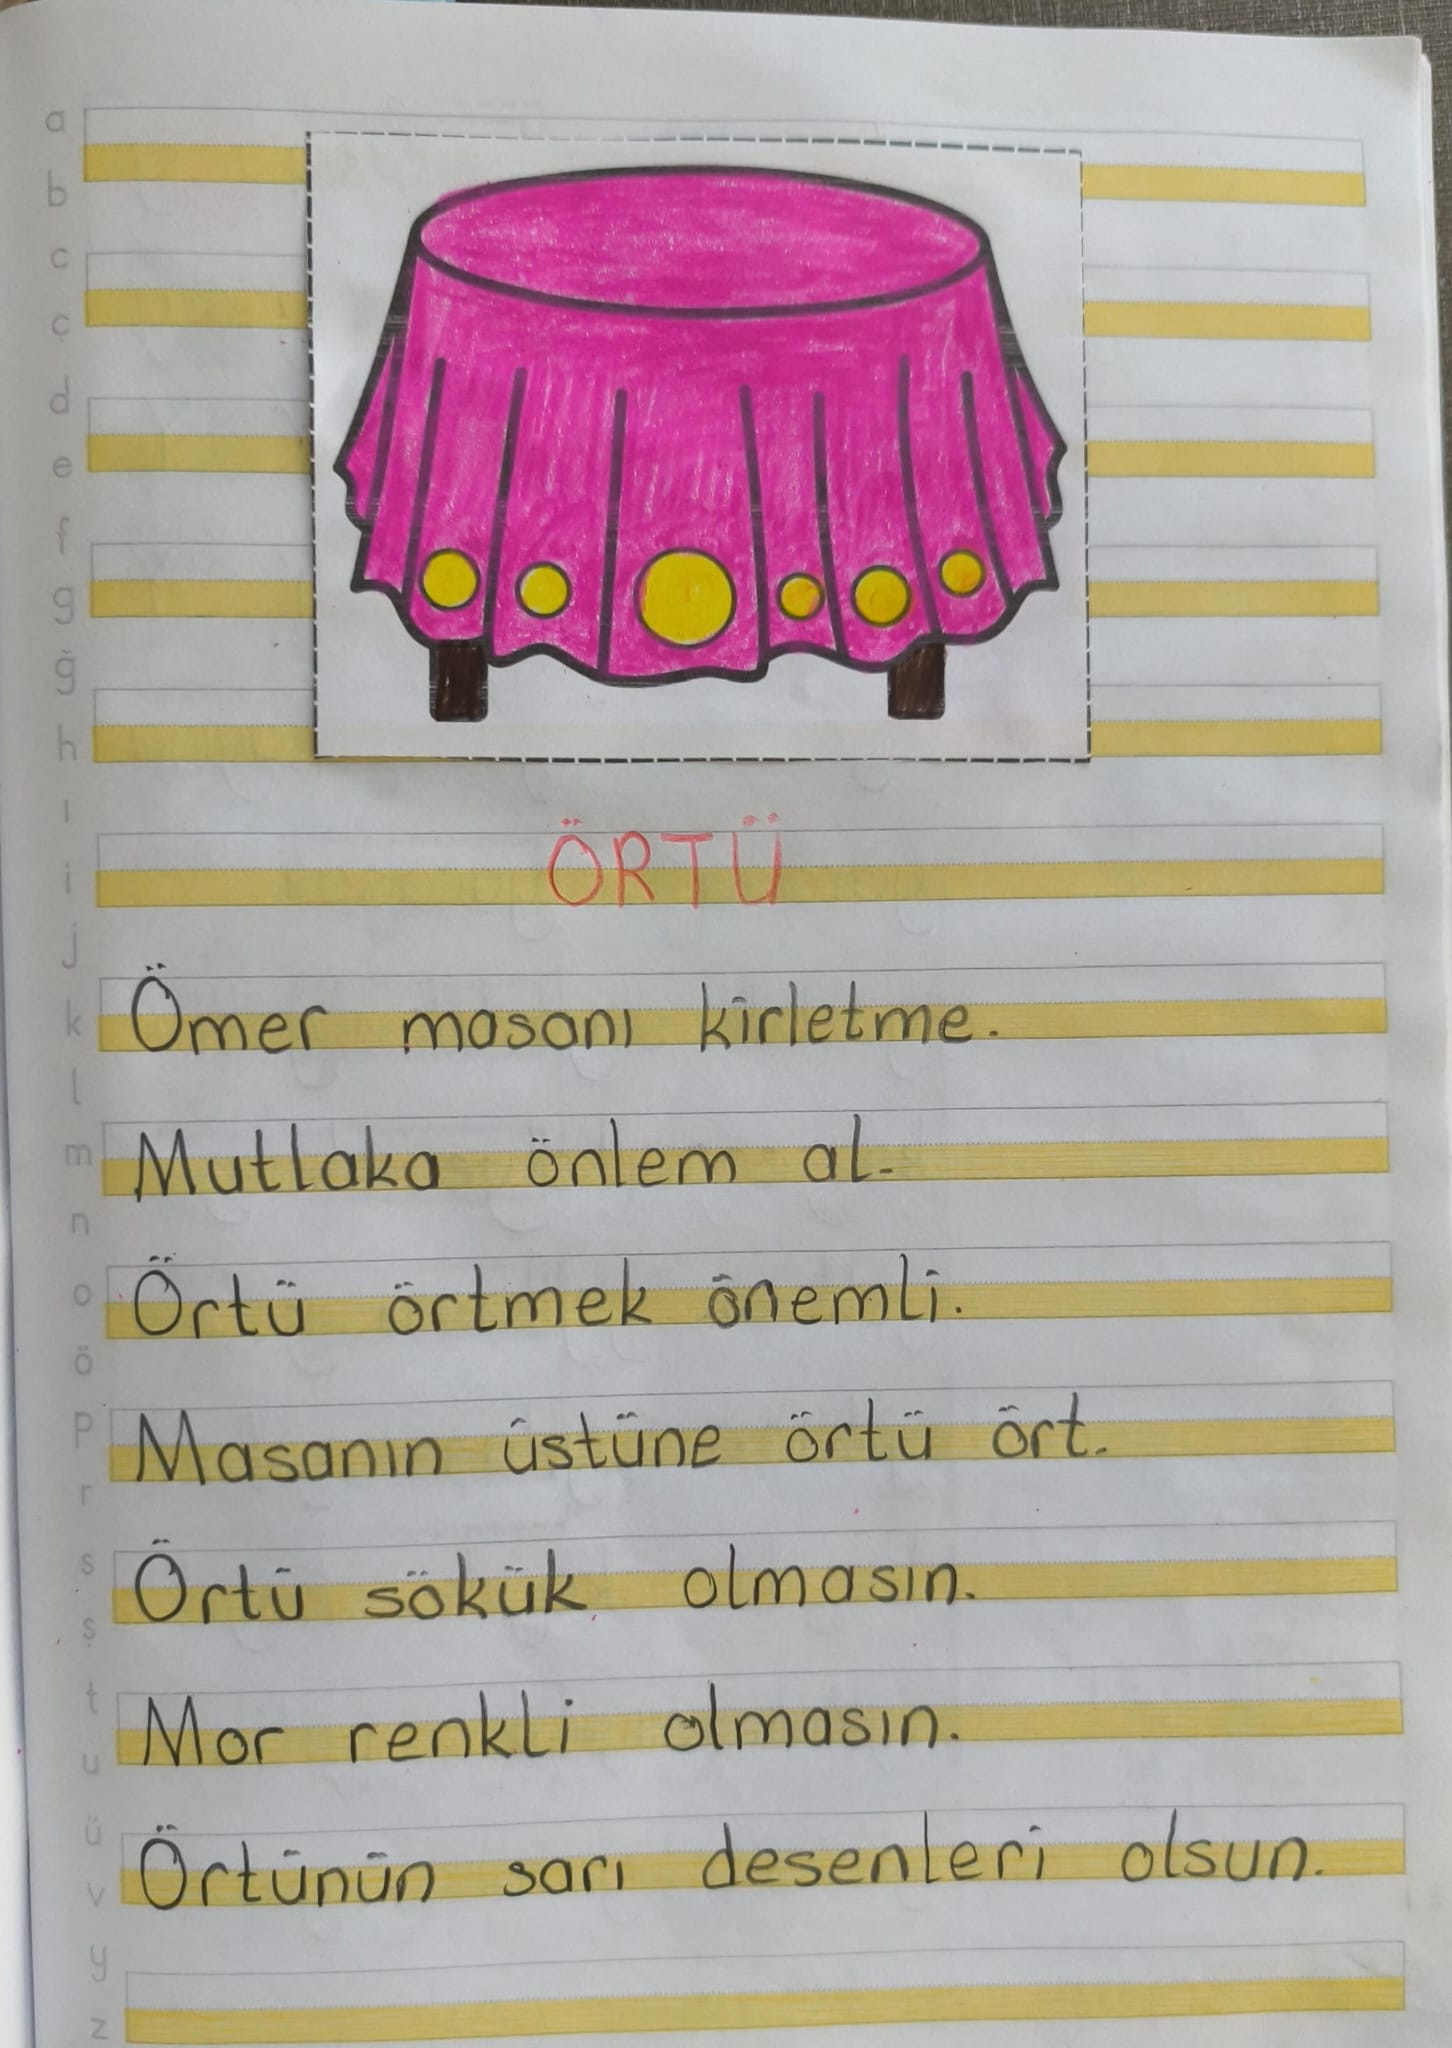 a
b
c
ç
d
e
f
g
ğ
h
ı
i
j
k
l
m
n
o
ö
p
r
s
ş
t
u
ü
v
y
z
ÖRTÜ
Ömer masanı kirletme.
Mutlaka önlem al.
Örtü örtmek önemli.
Masanın üstüne örtü ört.
Örtü sökük olmasın.
Mor renkli olmasın.
Örtünün sarı desenleri olsun.